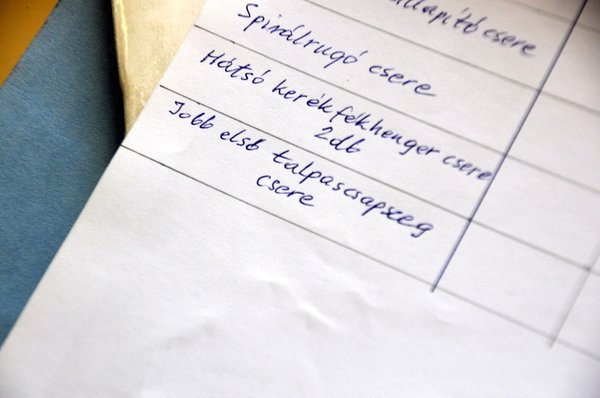 csere
Spirálrugó csere
Hátsó kerékfékhenger csere
2db
Jobb első talpascsapszeg
csere